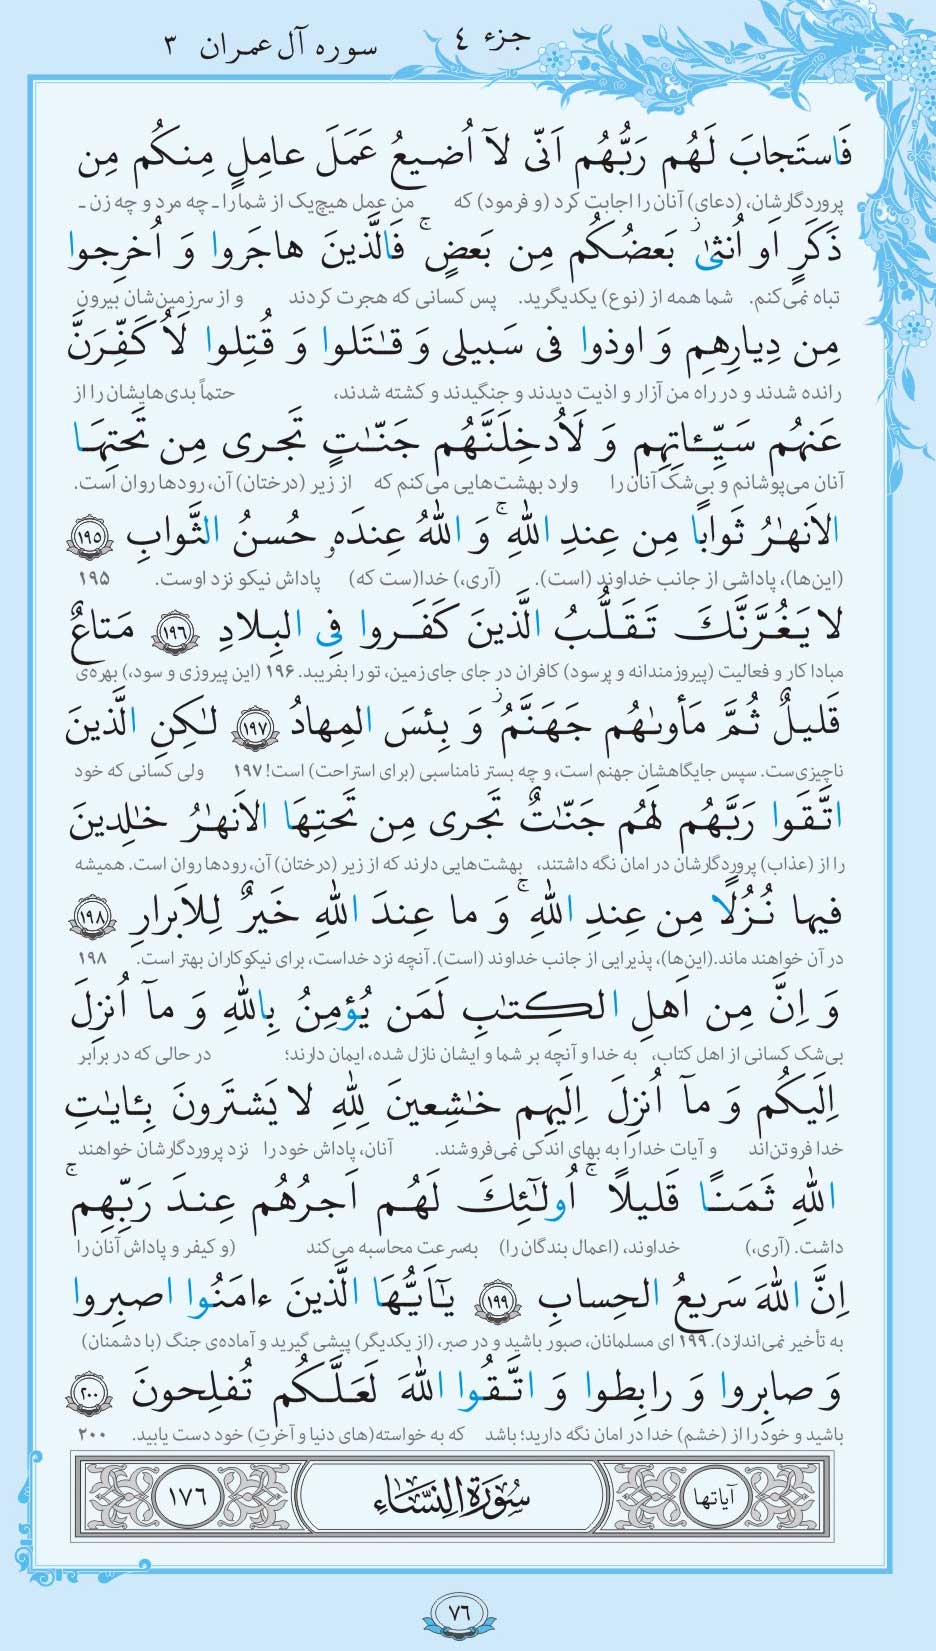 جزء ٤
سوره آل عمران ٣
فَاستَجابَ لَهُم رَبُّهُم اَنّى لآ اُضيعُ عَمَلَ عامِلٍ مِنكُم مِن
پروردگارشان، (دعای) آنان را اجابت کرد (و فرمود) که من عمل هیچ‌یک از شما را ـ چه مرد و چه زن ـ
ذَكَرٍ اَو اُنثىٰ ۖ بَعضُكُم مِن بَعضٍ ۚ فَالَّذينَ هاجَروا وَ اُخرِجوا
تباه نمی‌کنم. شما همه از (نوع) یکدیگرید. پس کسانی که هجرت کردند و از سرزمین‌شان بیرون
مِن دِيارِهِم وَ اوذوا فى سَبيلى وَ قٰتَلوا وَ قُتِلوا لَاُكَفِّرَنَّ
رانده شدند و در راه من آزار و اذیت دیدند و جنگیدند و کشته شدند، حتماً بدی‌هایشان را از
عَنهُم سَيِّـٔاتِهِم وَ لَاُدخِلَنَّهُم جَنّٰتٍ تَجرى مِن تَحتِهَا
آنان می‌پوشانم و بی‌شک آنان را وارد بهشت‌هایی می‌کنم که از زیر (درختان) آن، رودها روان است.
الاَنهٰرُ ثَوابًا مِن عِندِ اللهِ ۚ وَ اللهُ عِندَهٖ حُسنُ الثَّوابِ ١٩٥
(این‌ها)، پاداشی از جانب خداوند (است). (آری،) خدا(ست که) پاداش نیکو نزد اوست. ۱۹۵
لا يَغُرَّنَّكَ تَقَلُّبُ الَّذينَ كَفَروا فِى البِلادِ ١٩٦ مَتاعٌ
مبادا کار و فعالیت (پیروزمندانه و پرسود) کافران در جای جای زمین، تو را بفریبد. ۱۹۶ (این پیروزی و سود،) بهره‌ی
قَليلٌ ثُمَّ مَأوىٰهُم جَهَنَّمُ ۖ وَ بِئسَ المِهادُ ١٩٧ لٰكِنِ الَّذينَ
ناچیزی‌ست. سپس جایگاهشان جهنم است، و چه بستر نامناسبی (برای استراحت) است! ۱۹۷ ولی کسانی که خود
اتَّقَوا رَبَّهُم لَهُم جَنّٰتٌ تَجرى مِن تَحتِهَا الاَنهٰرُ خٰلِدينَ
را از (عذاب) پروردگارشان در امان نگه داشتند، بهشت‌هایی دارند که از زیر (درختان) آن، رودها روان است. همیشه
فيها نُزُلًا مِن عِندِ اللهِ ۚ وَ ما عِندَ اللهِ خَيرٌ لِلاَبرارِ ١٩٨
در آن خواهند ماند.(این‌ها)، پذیرایی از جانب خداوند (است). آنچه نزد خداست، برای نیکوکاران بهتر است. ۱۹۸
وَ اِنَّ مِن اَهلِ الكِتٰبِ لَمَن يُؤمِنُ بِاللهِ وَ مآ اُنزِلَ
بی‌شک کسانی از اهل کتاب، به خدا و آنچه بر شما و ایشان نازل شده، ایمان دارند؛ در حالی که در برابر
اِلَيكُم وَ مآ اُنزِلَ اِلَيهِم خٰشِعينَ لِلّٰهِ لا يَشتَرونَ بِـٔايٰتِ
خدا فروتن‌اند و آیات خدا را به بهای اندکی نمی‌فروشند. آنان، پاداش خود را نزد پروردگارشان خواهند
اللهِ ثَمَنًا قَليلًا ۚ اُولٰٓئِكَ لَهُم اَجرُهُم عِندَ رَبِّهِم ۚ
داشت. (آری،) خداوند، (اعمال بندگان را) به‌سرعت محاسبه می‌کند (و کیفر و پاداش آنان را
اِنَّ اللهَ سَريعُ الحِسابِ ١٩٩ يٰٓاَيُّهَا الَّذينَ ءامَنُوا اصبِروا
به تأخیر نمی‌اندازد). ۱۹۹ ای مسلمانان، صبور باشید و در صبر، (از یکدیگر) پیشی گیرید و آماده‌ی جنگ (با دشمنان)
وَ صابِروا وَ رابِطوا وَ اتَّقُوا اللهَ لَعَلَّكُم تُفلِحونَ ٢٠٠
باشید و خود را از (خشم) خدا در امان نگه دارید؛ باشد که به خواسته(های دنیا و آخرتِ) خود دست یابید. ۲۰۰
آیاتها سُورَةُ النِّسَاءِ ١٧٦
٧٦